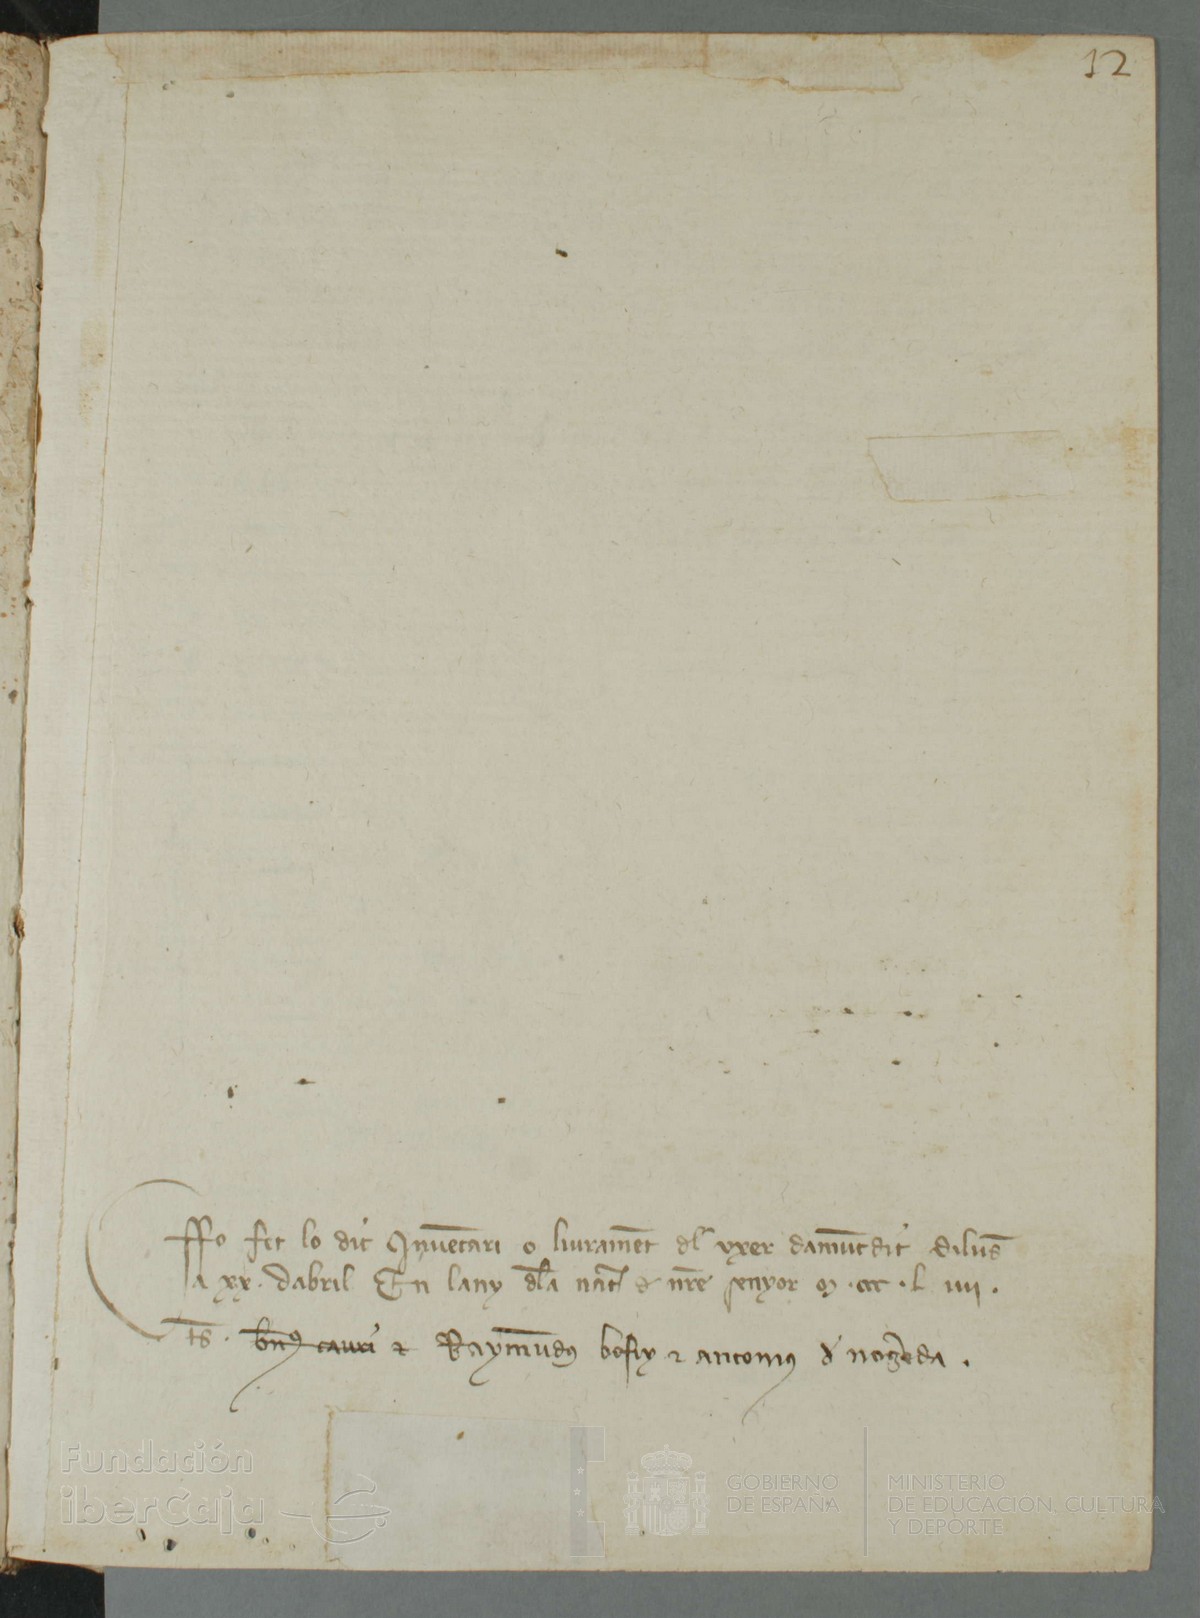 12
Ffo fet lo dit Inuētari o liuramēt dl vxer damūtdit diluns
a xx. dabril En lany dla nat de nre senyor M .ccc .l iiii .
ts . bn9 cauri et Raymūd9 bofiy et antoni9 d nogreda .
Fundación
iberCaja
GOBIERNO
DE ESPAÑA
MINISTERIO
DE EDUCACIÓN, CULTURA
Y DEPORTE